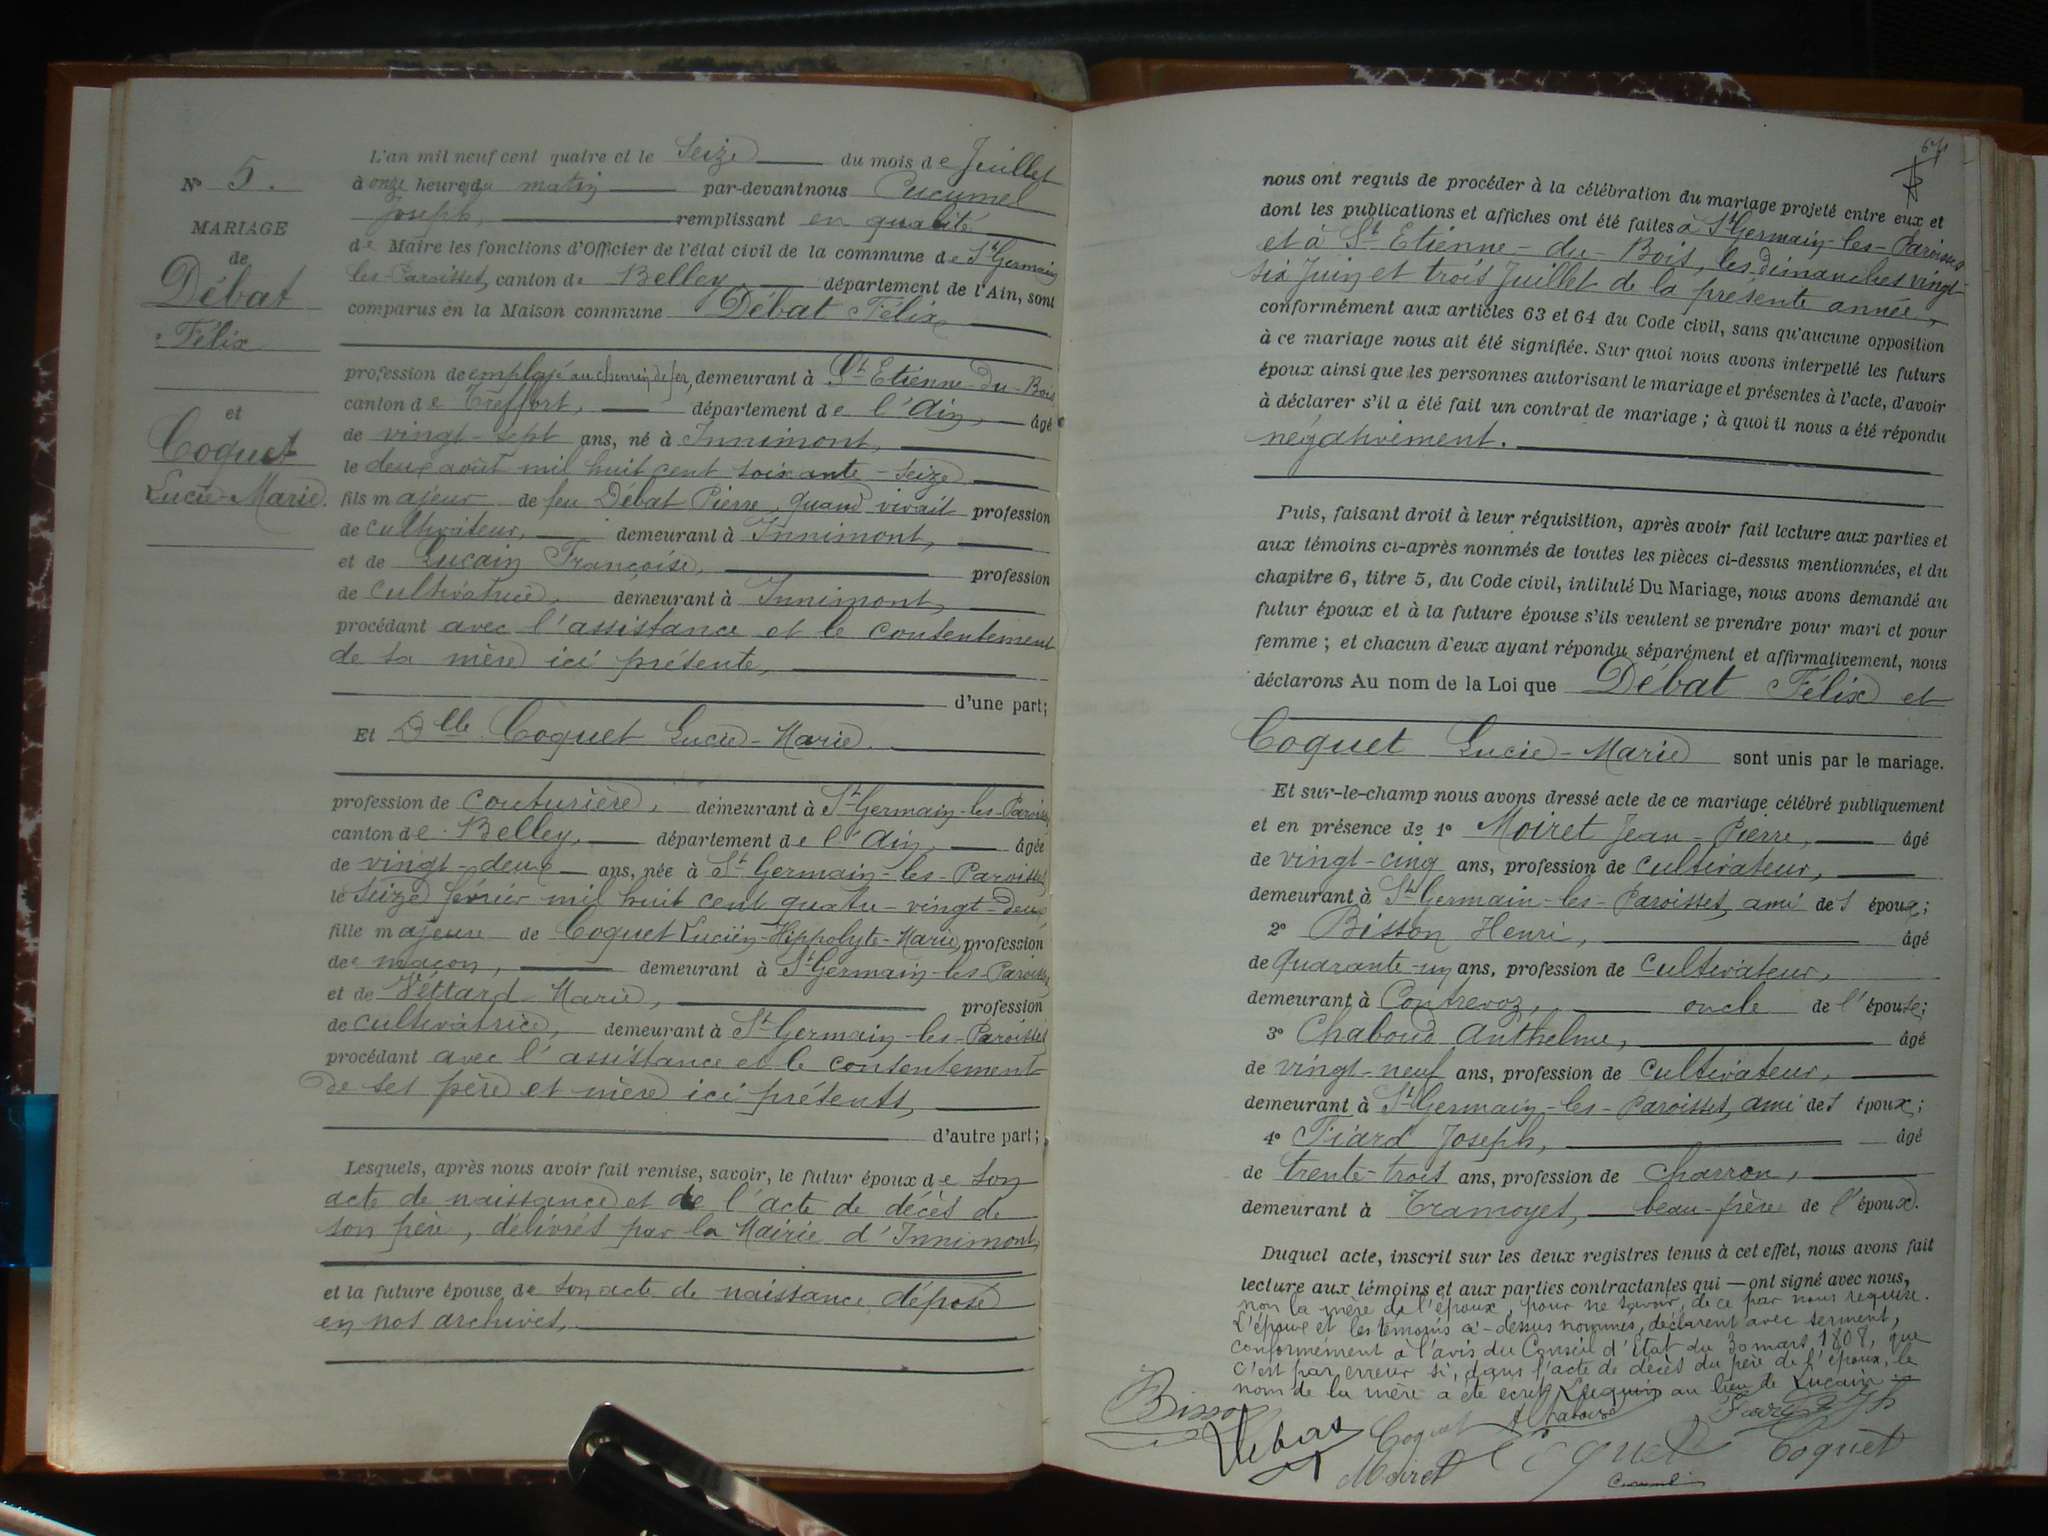 N° 5.
MARIAGE
de
Débat
Félix
et
Coquet
Lucie-Marie.
L'an mil neuf cent quatre et le Seize du mois de Juillet
à onze heures du matin par-devant nous Cucumel
Joseph, remplissant en qualité
de Maire les fonctions d'Officier de l'état civil de la commune de St Germain
les-Paroisses, canton de Belley département de l'Ain, sont
comparus en la Maison commune Débat Félix,
profession de employé au chemin de fer, demeurant à St Etienne-du-Bois
canton de Treffort, département de l'Ain, âgé
de vingt-sept ans, né à Innimont,
le deux août mil huit cent soixante-seize
fils majeur de feu Débat Pierre, quand vivait profession
de cultivateur, demeurant à Innimont,
et de Lucain Françoise, profession
de cultivatrice, demeurant à Innimont,
procédant avec l'assistance et le consentement
de sa mère ici présente,
d'une part;
Et Dlle Coquet Lucie-Marie.
profession de couturière, demeurant à St Germain-les-Paroisses
canton de Belley, département de l'Ain, âgée
de vingt-deux ans, née à St Germain-les-Paroisses
le seize février mil huit cent quatre-vingt-deux
fille majeure de Coquet Lucien-Hippolyte-Marie, profession
de maçon, demeurant à St Germain-les-Paroisses
et de Véttard Marie, profession
de cultivatrice, demeurant à St Germain-les-Paroisses
procédant avec l'assistance et le consentement
de ses père et mère ici présents,
d'autre part;
Lesquels, après nous avoir fait remise, savoir, le futur époux de son
acte de naissance et de l'acte de décès de
son père, délivrés par la Mairie d'Innimont,
et la future épouse de son acte de naissance déposé
en nos archives,
64
nous ont requis de procéder à la célébration du mariage projeté entre eux et
dont les publications et affiches ont été faites à St Germain-les-Paroisses
et à St Etienne-du-Bois, les dimanches vingt-
six Juin et trois Juillet de la présente année,
conformément aux articles 63 et 64 du Code civil, sans qu'aucune opposition
à ce mariage nous ait été signifiée. Sur quoi nous avons interpellé les futurs
époux ainsi que les personnes autorisant le mariage et présentes à l'acte, d'avoir
à déclarer s'il a été fait un contrat de mariage; à quoi il nous a été répondu
négativement.
Puis, faisant droit à leur réquisition, après avoir fait lecture aux parties et
aux témoins ci-après nommés de toutes les pièces ci-dessus mentionnées, et du
chapitre 6, titre 5, du Code civil, intitulé Du Mariage, nous avons demandé au
futur époux et à la future épouse s'ils veulent se prendre pour mari et pour
femme; et chacun d'eux ayant répondu séparément et affirmativement, nous
déclarons Au nom de la Loi que Débat Félix et
Coquet Lucie-Marie sont unis par le mariage.
Et sur-le-champ nous avons dressé acte de ce mariage célébré publiquement
et en présence de 1° Moiret Jean-Pierre, âgé
de vingt-cinq ans, profession de cultivateur,
demeurant à St Germain-les-Paroisses, ami des époux;
2° Bisson Henri, âgé
de quarante-un ans, profession de cultivateur,
demeurant à Contrevoz, oncle de l'épouse;
3° Chaboud Anthelme, âgé
de vingt-neuf ans, profession de cultivateur,
demeurant à St Germain-les-Paroisses, ami des époux;
4° Fiard Joseph, âgé
de trente-trois ans, profession de charron,
demeurant à Tramoyes, beau-frère de l'époux.
Duquel acte, inscrit sur les deux registres tenus à cet effet, nous avons fait
lecture aux témoins et aux parties contractantes qui — ont signé avec nous,
non la mère de l'époux, pour ne savoir, de ce par nous requise.
L'épouse et les témoins ci-dessus nommés, déclarent avec serment,
conformément à l'avis du Conseil d'Etat du 30 mars 1808, que
c'est par erreur si, dans l'acte de décès du père de l'époux, le
nom de la mère a été écrit Luquin au lieu de Lucain
Bisson
Debat
Coquet
A Chaboud
Moiret
Coquet
Coquet